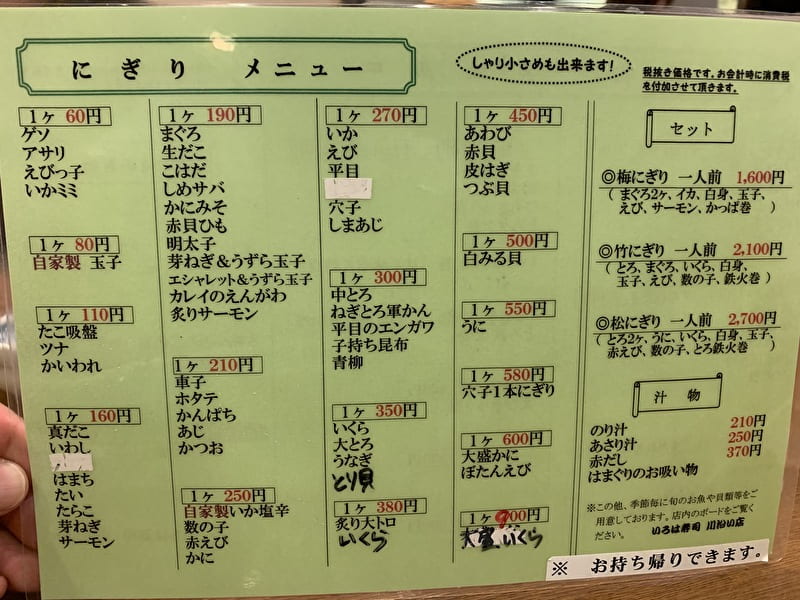 にぎり メニュー
しゃり小さめも出来ます!
税抜き価格です。お会計時に消費税
を付加させて頂きます。
1ヶ 60円
ゲソ
アサリ
えびっ子
いかミミ
1ヶ 80円
自家製 玉子
1ヶ 110円
たこ吸盤
ツナ
かいわれ
1ヶ 160円
真だこ
いわし
はまち
たい
たらこ
芽ねぎ
サーモン
1ヶ 190円
まぐろ
生だこ
こはだ
しめサバ
かにみそ
赤貝ひも
明太子
芽ねぎ&うずら玉子
エシャレット&うずら玉子
カレイのえんがわ
炙りサーモン
1ヶ 210円
車子
ホタテ
かんぱち
あじ
かつお
1ヶ 250円
自家製いか塩辛
数の子
赤えび
かに
1ヶ 270円
いか
えび
平目
穴子
しまあじ
1ヶ 300円
中とろ
ねぎとろ軍かん
平目のエンガワ
子持ち昆布
青柳
1ヶ 350円
いくら
大とろ
うなぎ
とり貝
1ヶ 380円
炙り大トロ
いくら
1ヶ 450円
あわび
赤貝
皮はぎ
つぶ貝
1ヶ 500円
白みる貝
1ヶ 550円
うに
1ヶ 580円
穴子1本にぎり
1ヶ 600円
大盛かに
ぼたんえび
1ヶ 900円
大盛いくら
セット
◎梅にぎり 一人前 1,600円
(まぐろ2ヶ、イカ、白身、玉子、
えび、サーモン、かっぱ巻 )
◎竹にぎり 一人前 2,100円
(とろ、まぐろ、いくら、白身、
玉子、えび、数の子、鉄火巻 )
◎松にぎり 一人前 2,700円
(とろ2ヶ、うに、いくら、白身、玉子、
赤えび、数の子、とろ鉄火巻 )
汁 物
のり汁 210円
あさり汁 250円
赤だし 370円
はまぐりのお吸い物
※この他、季節毎に旬のお魚や貝類等をご
用意しております。店内のボードをご覧く
ださい。 いろは寿司 川沿い店
※ お持ち帰りできます。